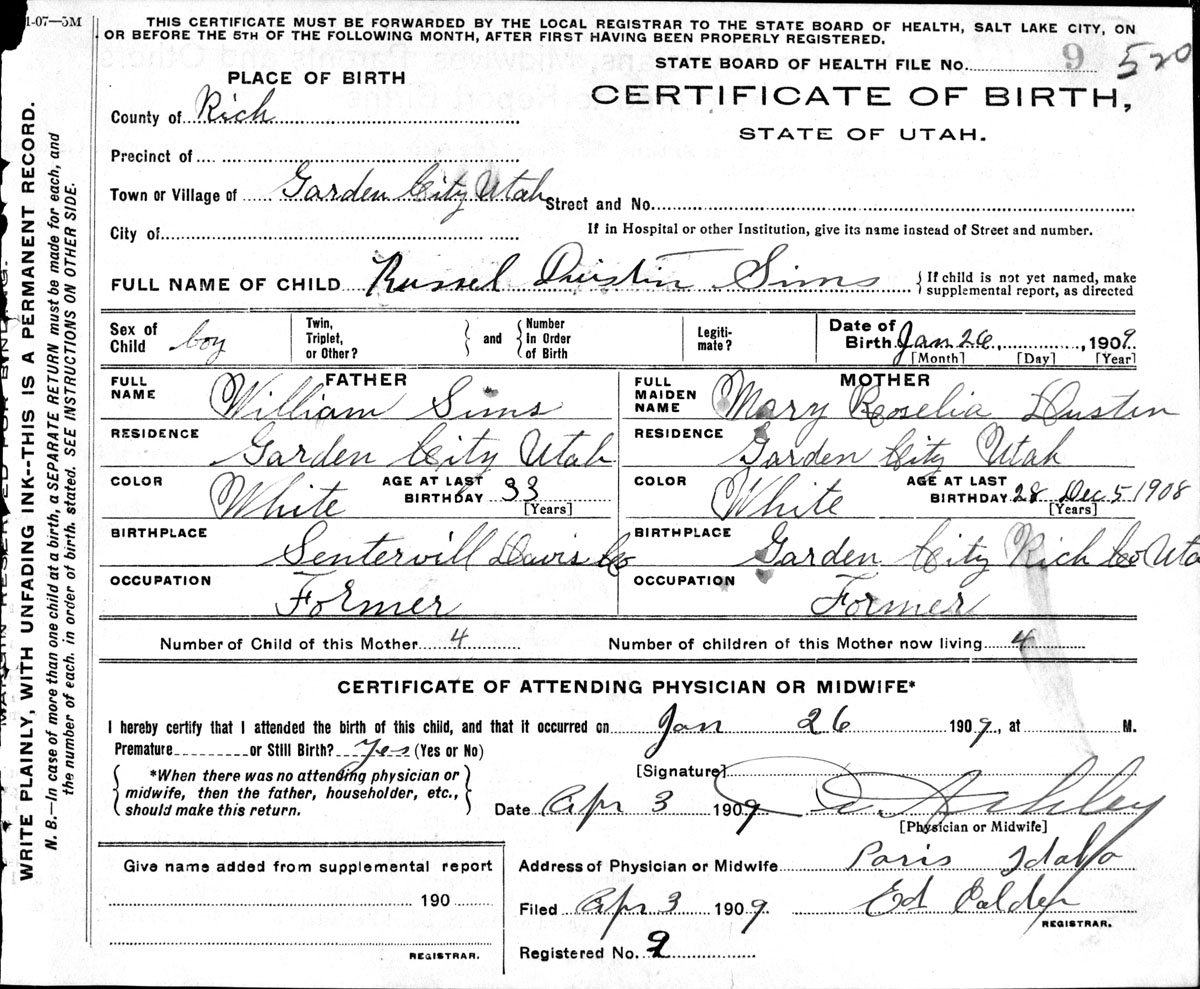 1-07—5M
THIS CERTIFICATE MUST BE FORWARDED BY THE LOCAL REGISTRAR TO THE STATE BOARD OF HEALTH, SALT LAKE CITY, ON
OR BEFORE THE 5TH OF THE FOLLOWING MONTH, AFTER FIRST HAVING BEEN PROPERLY REGISTERED.
STATE BOARD OF HEALTH FILE No. 9 520
PLACE OF BIRTH
CERTIFICATE OF BIRTH,
STATE OF UTAH.
County of Rich
Precinct of
Town or Village of Garden City Utah Street and No.
City of
If in Hospital or other Institution, give its name instead of Street and number.
FULL NAME OF CHILD Russel Dustin Sims { If child is not yet named, make
supplemental report, as directed
Sex of Child boy
Twin, Triplet, or Other? } and { Number In Order of Birth
Legiti-mate?
Date of Birth Jan 26, , 1909.
[Month] [Day] [Year]
FATHER
FULL NAME William Sims
RESIDENCE Garden City Utah
COLOR White AGE AT LAST BIRTHDAY 33
[Years]
BIRTHPLACE Sentervill Davis Co
OCCUPATION Former
MOTHER
FULL MAIDEN NAME Mary Roselia Dustin
RESIDENCE Garden City Utah
COLOR White AGE AT LAST BIRTHDAY 28 Dec 5 1908
[Years]
BIRTHPLACE Garden City Rich Co Uta
OCCUPATION Former
Number of Child of this Mother 4 Number of children of this Mother now living 4
CERTIFICATE OF ATTENDING PHYSICIAN OR MIDWIFE*
I hereby certify that I attended the birth of this child, and that it occurred on Jan 26 1909, at M.
Premature or Still Birth? Yes (Yes or No)
{ *When there was no attending physician or
midwife, then the father, householder, etc.,
should make this return. }
[Signature]
Date Apr 3 1909 Ashley
[Physician or Midwife]
Give name added from supplemental report
190
REGISTRAR.
Address of Physician or Midwife Paris Idaho
Filed Apr 3 1909 Ed Calder
REGISTRAR.
Registered No. 9
MARGIN RESERVED FOR BINDING.
WRITE PLAINLY, WITH UNFADING INK--THIS IS A PERMANENT RECORD.
N. B.—In case of more than one child at a birth, a SEPARATE RETURN must be made for each, and
the number of each, in order of birth, stated. SEE INSTRUCTIONS ON OTHER SIDE.